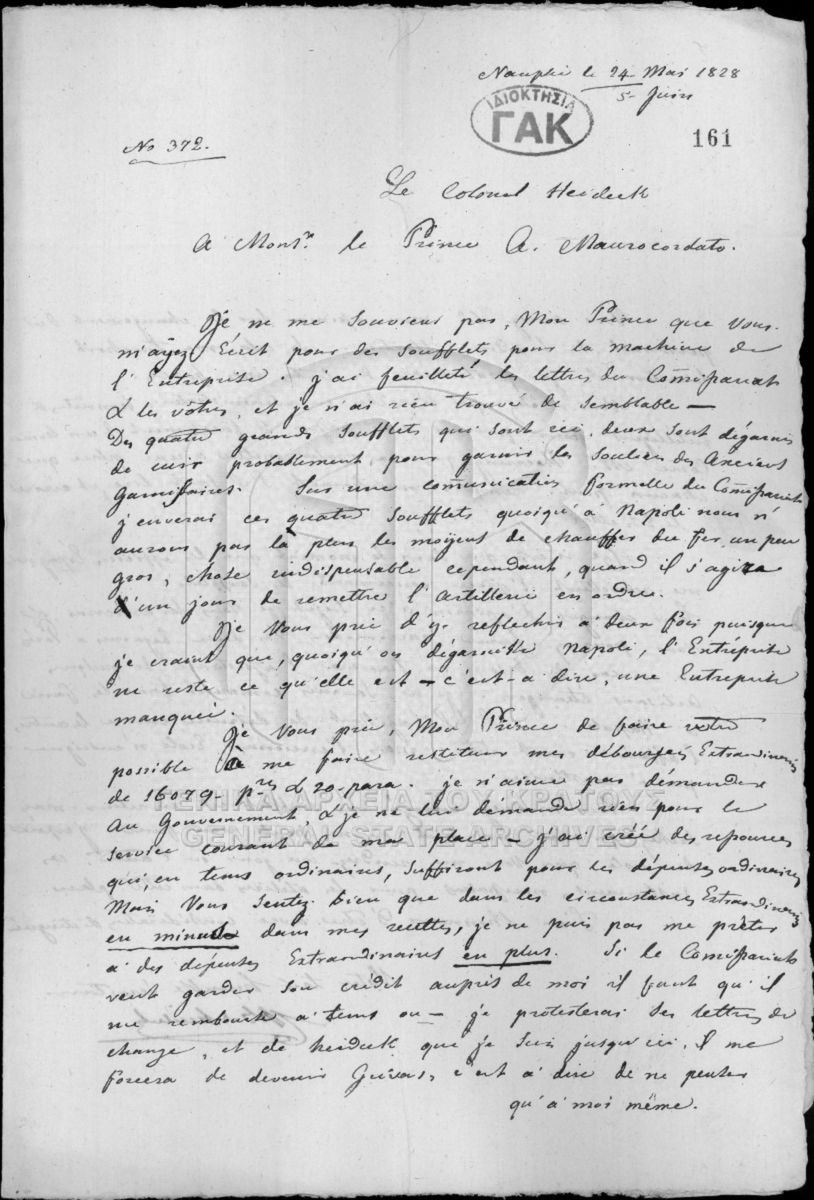 Nauplie le 24 Mai 1828
5 Juin
ΙΔΙΟΚΤΗΣΙΑ
ΓΑΚ
161
No 372.
Le Colonel Heideck
A Monsr. le Prince A. Maurocordato.
Je ne me souviens pas, Mon Prince que Vous
m'ayez Ecrit pour des soufflets pour la machine de
l'Entreprise. j'ai feuilleté les lettres du Comissariat
& les vôtres, et je n'ai rien trouvé de semblable —
Des quatre grands soufflets qui sont ici, deux sont dégarnis
de cuir probablement, pour garnir les souliers des Anciens
Garnissaires. Sur une comunication formelle du Comissariat
j'enverai ces quatre soufflets quoiqu'à Napoli nous n'
aurons pas là plus les moyens de chauffer du fer un peu
gros, chose indispensable cependant, quand il s'agira
d'un jour de remettre l'artillerie en ordre.
Je Vous prie d'y reflechir à deux fois puisque
je craint que, quoiqu'on dégarnisse Napoli, l'Entréprise
ne reste ce qu'elle est — c'est-à dire, une Entreprise
manquée.
Je Vous prie, Mon Prince de faire votre
possible à me faire restituer mes débourses Extraordinaires
de 16079 p.res & 20 para. je n'aime pas démander
au Gouvernement, & je ne lui démande rien pour le
service courant de ma place — j'ai créé des repources
qui, en tems ordinaires, suffiront pour les dépenses ordinaires
Mais Vous sentez bien que dans les circonstances Extraordinaires
en minus dans mes recettes, je ne puis pas me prêter
à des dépenses Extraordinaires en plus. Si le Comissariat
veut garder son crédit auprès de moi il faut qu'il
me rembourse à tems ou — je protesterai ses lettres de
change, et de Heideck que je suis jusqu'ici, Il me
forcera de devenir Grivas, c'est à dire de ne penser
qu'à moi même.
ΓΕΝΙΚΑ ΑΡΧΕΙΑ ΤΟΥ ΚΡΑΤΟΥΣ
GENERAL STATE ARCHIVES